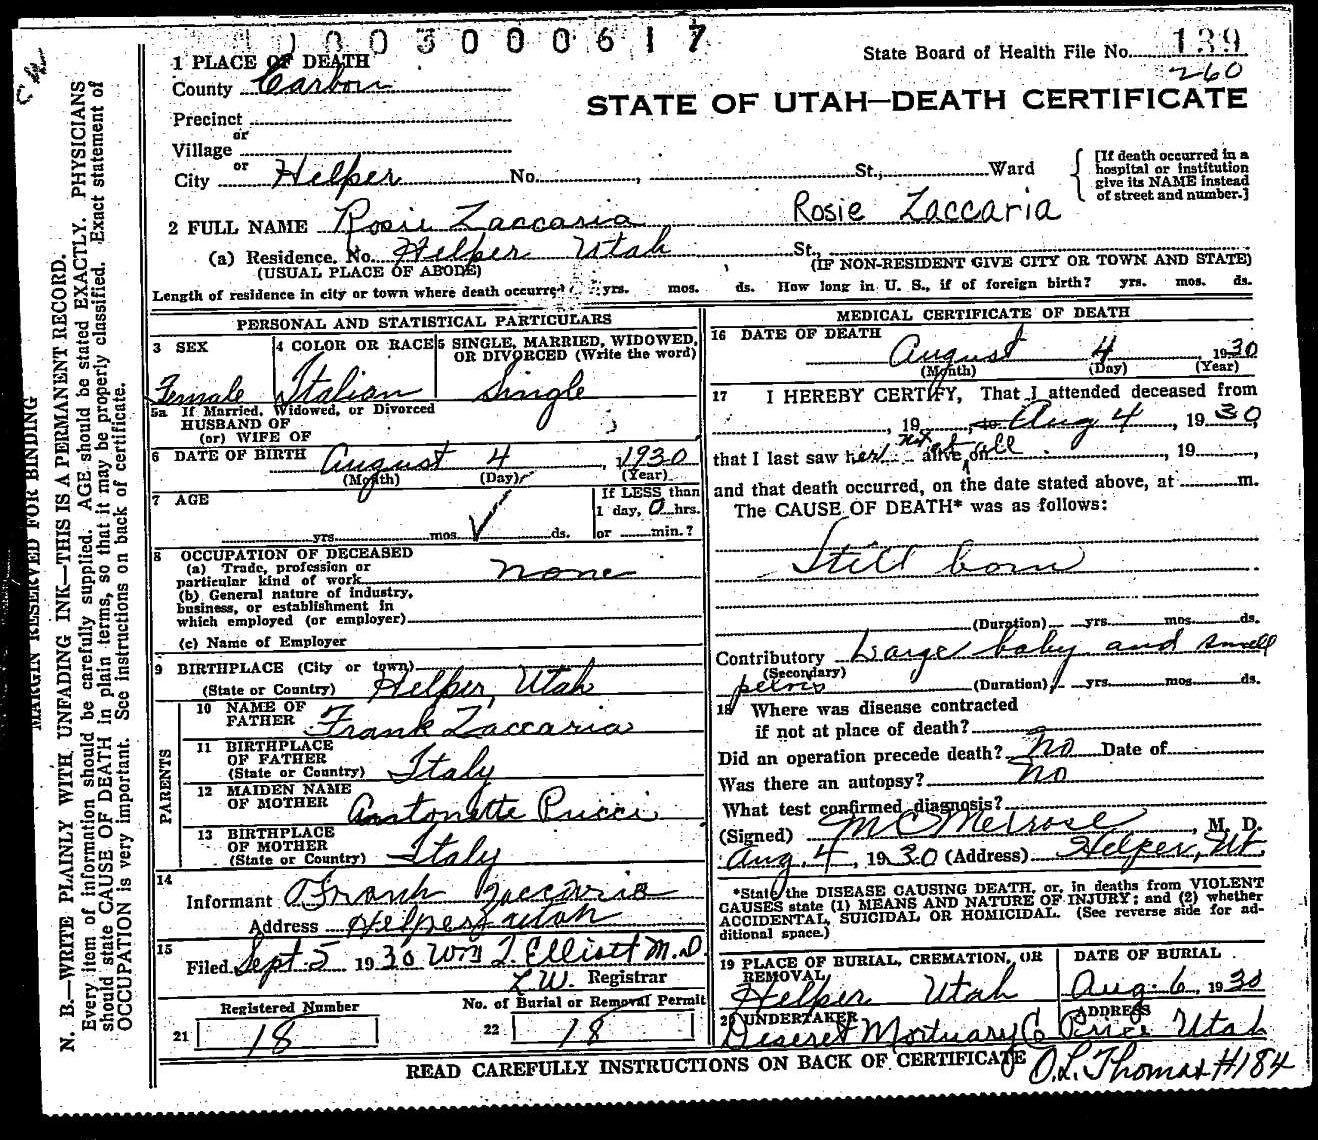 003000617
State Board of Health File No. 139
260
1 PLACE OF DEATH
County Carbon
STATE OF UTAH—DEATH CERTIFICATE
Precinct
or
Village
or
City Helper No. , St., Ward
[If death occurred in a hospital or institution give its NAME instead of street and number.]
2 FULL NAME Rosie Zaccaria Rosie Zaccaria
(a) Residence. No. Helper Utah St.,
(USUAL PLACE OF ABODE) (IF NON-RESIDENT GIVE CITY OR TOWN AND STATE)
Length of residence in city or town where death occurred yrs. mos. ds. How long in U. S., if of foreign birth? yrs. mos. ds.
PERSONAL AND STATISTICAL PARTICULARS
3 SEX
Female
4 COLOR OR RACE
Italian
5 SINGLE, MARRIED, WIDOWED, OR DIVORCED (Write the word)
Single
5a If Married, Widowed, or Divorced
HUSBAND OF
(or) WIFE OF
6 DATE OF BIRTH August 4, 1930
(Month) (Day) (Year)
7 AGE
yrs. mos. ds.
If LESS than
1 day, 0 hrs.
or min.?
8 OCCUPATION OF DECEASED
(a) Trade, profession or
particular kind of work none
(b) General nature of industry,
business, or establishment in
which employed (or employer)
(c) Name of Employer
9 BIRTHPLACE (City or town)
(State or Country) Helper, Utah
PARENTS
10 NAME OF
FATHER Frank Zaccaria
11 BIRTHPLACE
OF FATHER
(State or Country) Italy
12 MAIDEN NAME
OF MOTHER Antonette Pucci
13 BIRTHPLACE
OF MOTHER
(State or Country) Italy
14
Informant Frank Zaccaria
Address Helper Utah
15
Filed Sept 5 1930 Wm T. Elliott M.D.
L.W. Registrar
Registered Number
21 18
No. of Burial or Removal Permit
22 18
MEDICAL CERTIFICATE OF DEATH
16 DATE OF DEATH
August 4, 1930
(Month) (Day) (Year)
17 I HEREBY CERTIFY, That I attended deceased from
, 19 , to Aug 4, 1930
that I last saw her not at all alive on , 19 ,
and that death occurred, on the date stated above, at m.
The CAUSE OF DEATH* was as follows:
Still born
(Duration) yrs. mos. ds.
Contributory Large baby and small
(Secondary)
pelvis (Duration) yrs. mos. ds.
18 Where was disease contracted
if not at place of death?
Did an operation precede death? No Date of
Was there an autopsy? No
What test confirmed diagnosis?
(Signed) M C Melrose, M. D.
Aug. 4, 1930 (Address) Helper, Ut.
*State the DISEASE CAUSING DEATH, or, in deaths from VIOLENT
CAUSES state (1) MEANS AND NATURE OF INJURY; and (2) whether
ACCIDENTAL, SUICIDAL OR HOMICIDAL. (See reverse side for ad-
ditional space.)
19 PLACE OF BURIAL, CREMATION, OR
REMOVAL
Helper Utah
DATE OF BURIAL
Aug. 6, 1930
20 UNDERTAKER
Deseret Mortuary Co
ADDRESS
Price Utah
READ CAREFULLY INSTRUCTIONS ON BACK OF CERTIFICATE
O.L. Thomas #184
MARGIN RESERVED FOR BINDING
N. B.—WRITE PLAINLY WITH UNFADING INK—THIS IS A PERMANENT RECORD.
Every item of information should be carefully supplied. AGE should be stated EXACTLY. PHYSICIANS
should state CAUSE OF DEATH in plain terms, so that it may be properly classified. Exact statement of
OCCUPATION is very important. See instructions on back of certificate.